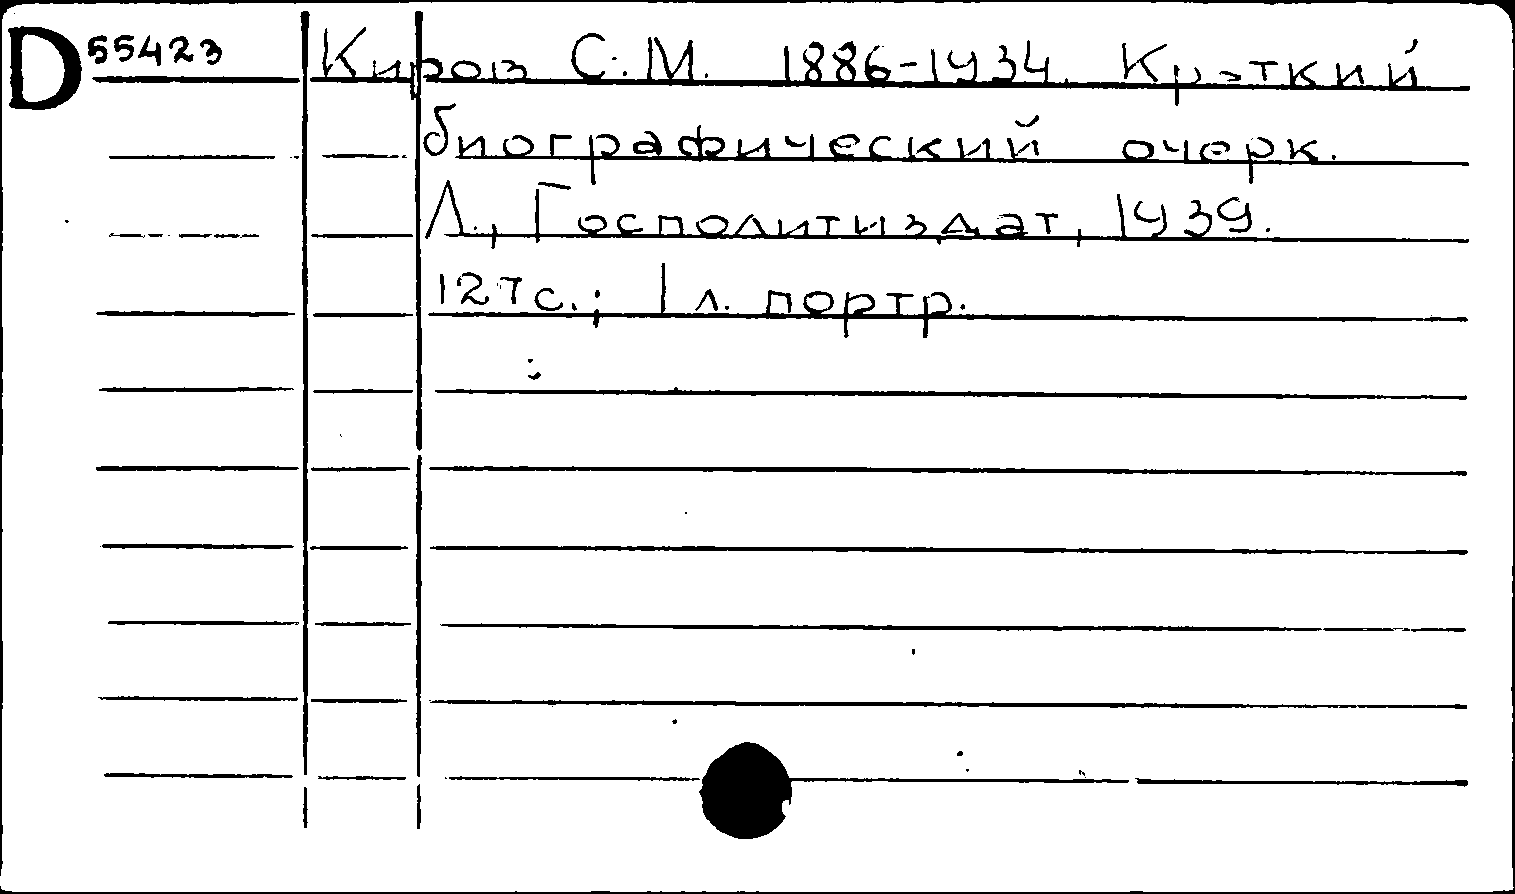 D55423 Киров С.М. 1886-1934. Краткий
биографический очерк.
Л., Госполитиздат, 1939.
127с.; 1 л. портр.